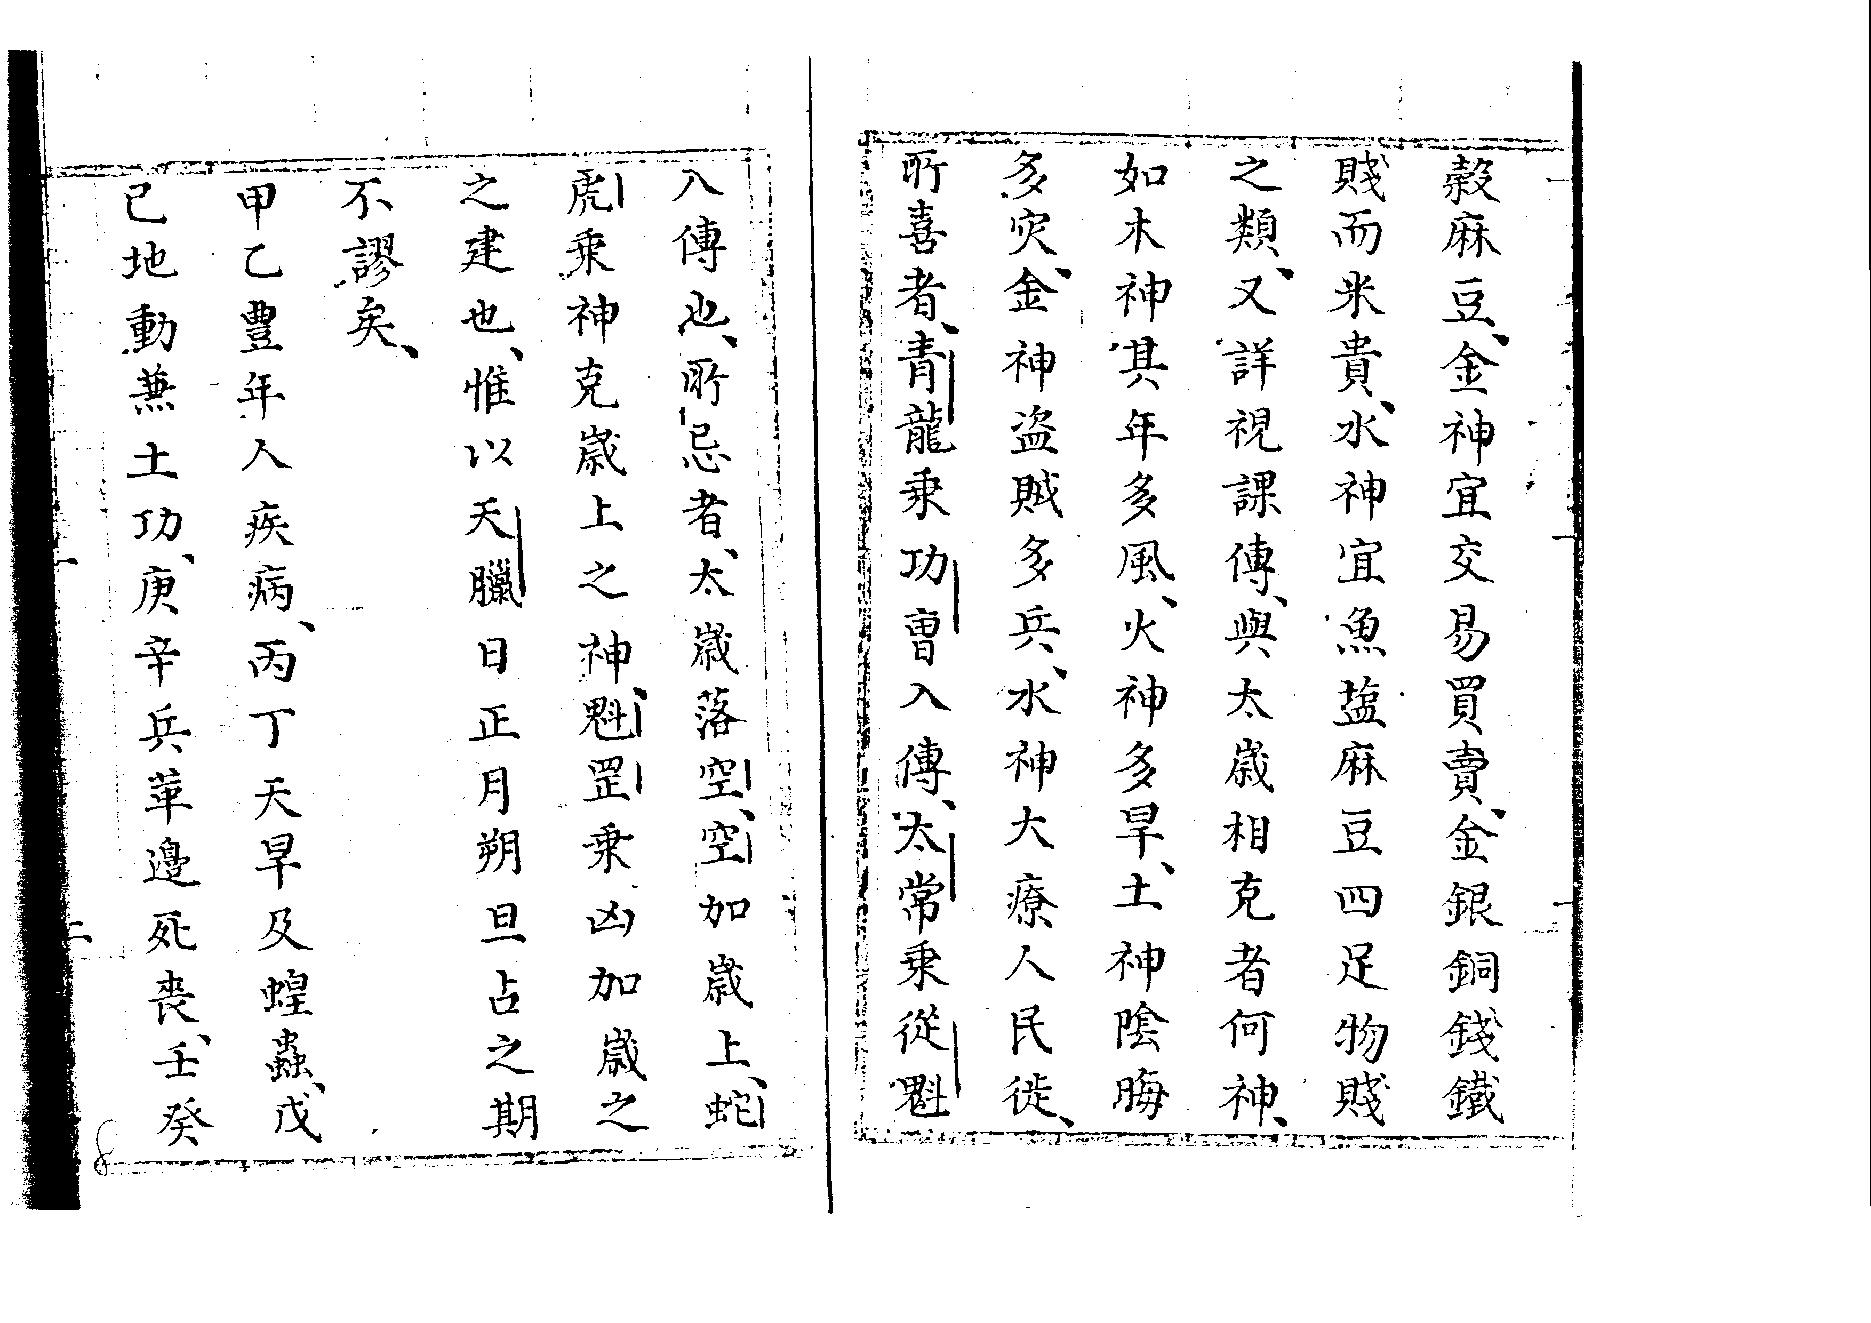 穀麻豆、金神宜交易買賣、金銀銅錢鐵
賤而米貴、水神宜魚塩麻豆四足物賤
之類、又詳視課傳、與太歲相克者何神、
如木神其年多風、火神多旱、土神陰晦
多灾、金神盗賊多兵、水神大療人民徙、
所喜者、青龍乘功曹入傳、太常乘從魁
入傳也、所忌者、太歲落空、空加歲上、蛇
虎乘神克歲上之神、魁罡乘凶加歲之
之建也、惟以天臘日正月朔旦占之期
不謬矣、
甲乙豐年人疾病、丙丁天旱及蝗蟲、戊
已地動兼土功、庚辛兵革邊死喪、壬癸
8